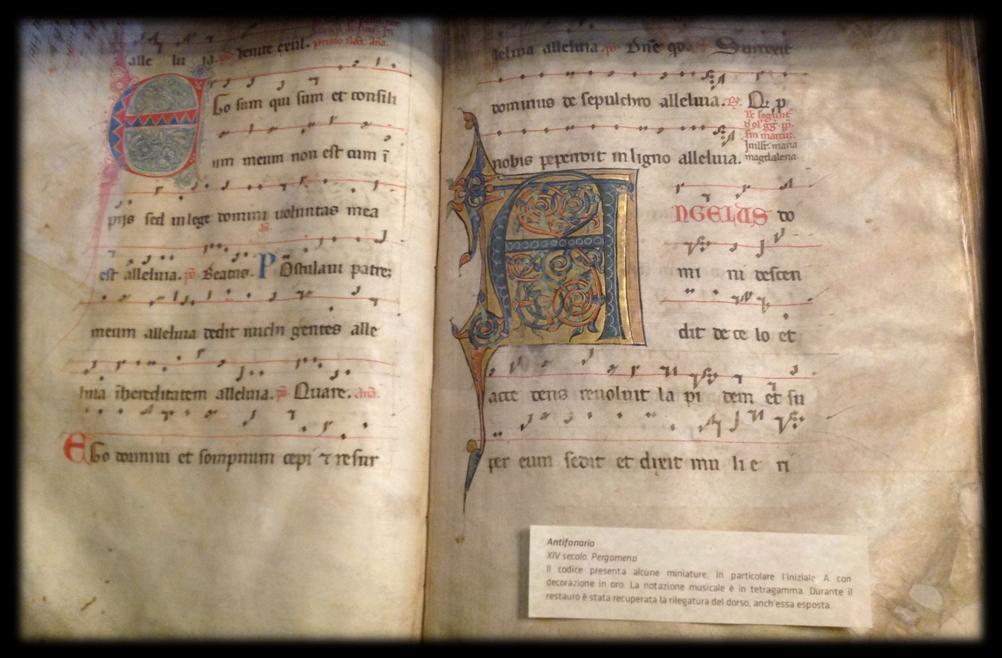 alle lu ia. ps. Venite exul.
Ego sum qui sum et consili
um meum non est cum i
pijs sed in lege domini voluntas mea
est alleluia. ps. Beatus. Postulavi patre
meum alleluia dedit michi gentes alle
luia i hereditatem alleluia. ps. Quare. ana.
Ego dormivi et sompnum cepi ⁊ resur
leluia alleluia. ps. Dne Surrexit
dominus de sepulchro alleluia. Qi p
nobis pependit in ligno alleluia.
maria
magdalena.
ANGELUS do
mi ni descen
dit de ce lo et
acce dens revolvit la pi dem et su
per eum sedit et dixit mu li e ri
Antifonario
XIV secolo. Pergamena
Il codice presenta alcune miniature, in particolare l'iniziale A con
decorazione in oro. La notazione musicale è in tetragamma. Durante il
restauro è stata recuperata la rilegatura del dorso, anch'essa esposta.